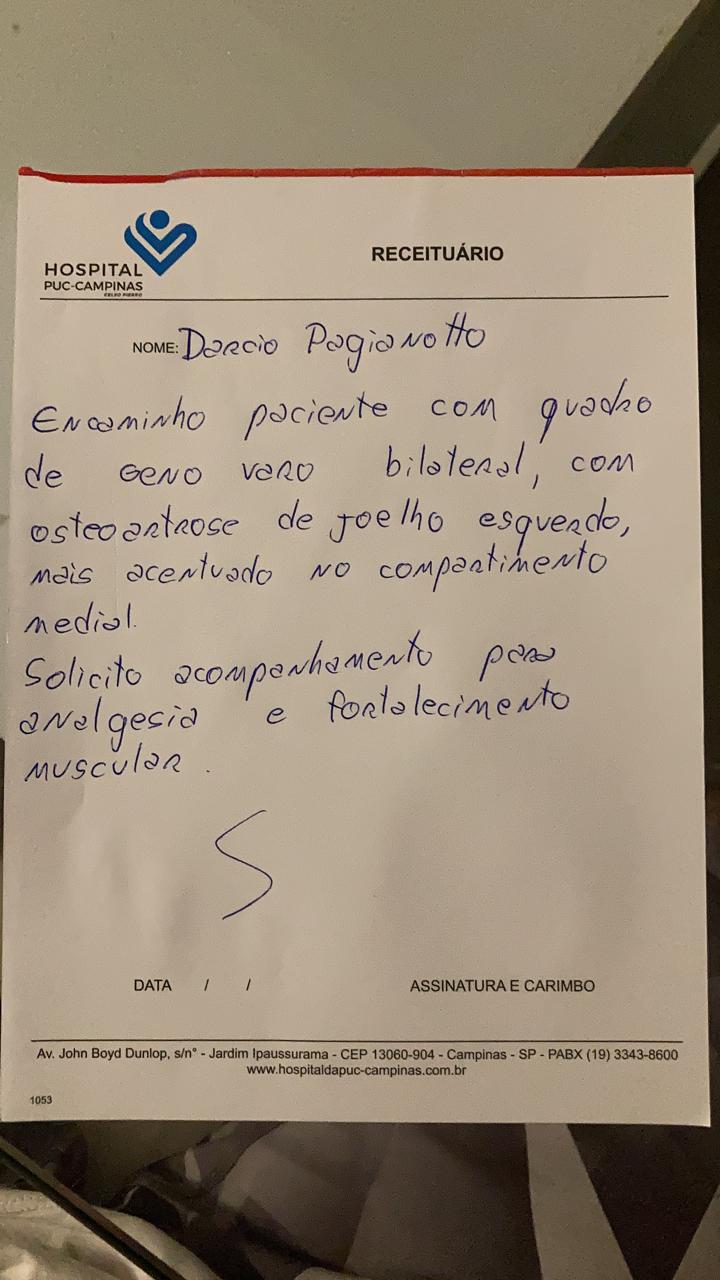 HOSPITAL
PUC-CAMPINAS
CELSO PIERRO
RECEITUÁRIO
NOME: Darcio Pagianotto
Encaminho paciente com quadro
de geno varo bilateral, com
osteoartrose de joelho esquerdo,
mais acentuado no compartimento
medial.
Solicito acompanhamento para
analgesia e fortalecimento
muscular.
DATA / /
ASSINATURA E CARIMBO
Av. John Boyd Dunlop, s/n° - Jardim Ipaussurama - CEP 13060-904 - Campinas - SP - PABX (19) 3343-8600
www.hospitaldapuc-campinas.com.br
1053